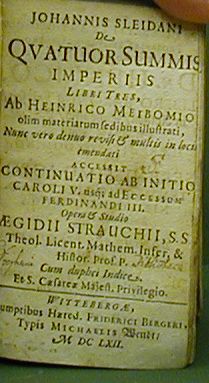 JOHANNIS SLEIDANI
De
QVATUOR SUMMIS
IMPERIIS
LIBRI TRES,
Ab HEINRICO MEIBOMIO
olim materiarum sedibus illustrati,
Nunc vero denuo revisi & multis in locis
emendati
ACCESSIT
CONTINUATIO AB INITIO
CAROLI V. ad EXCESSUM
FERDINANDI III.
Opera & Studio
ÆGIDII STRAUCHII, S.S.
Theol. Licent. Mathem. Infer. &
Histor. Prof. P.
Cum duplici Indice.
Et S. Cæsareæ Majest. Privilegio.
WITTEBERGÆ,
Sumptibus Hæred. FRIDERICI BERGERI,
Typis MICHAELIS Wendt
M DC LXII.